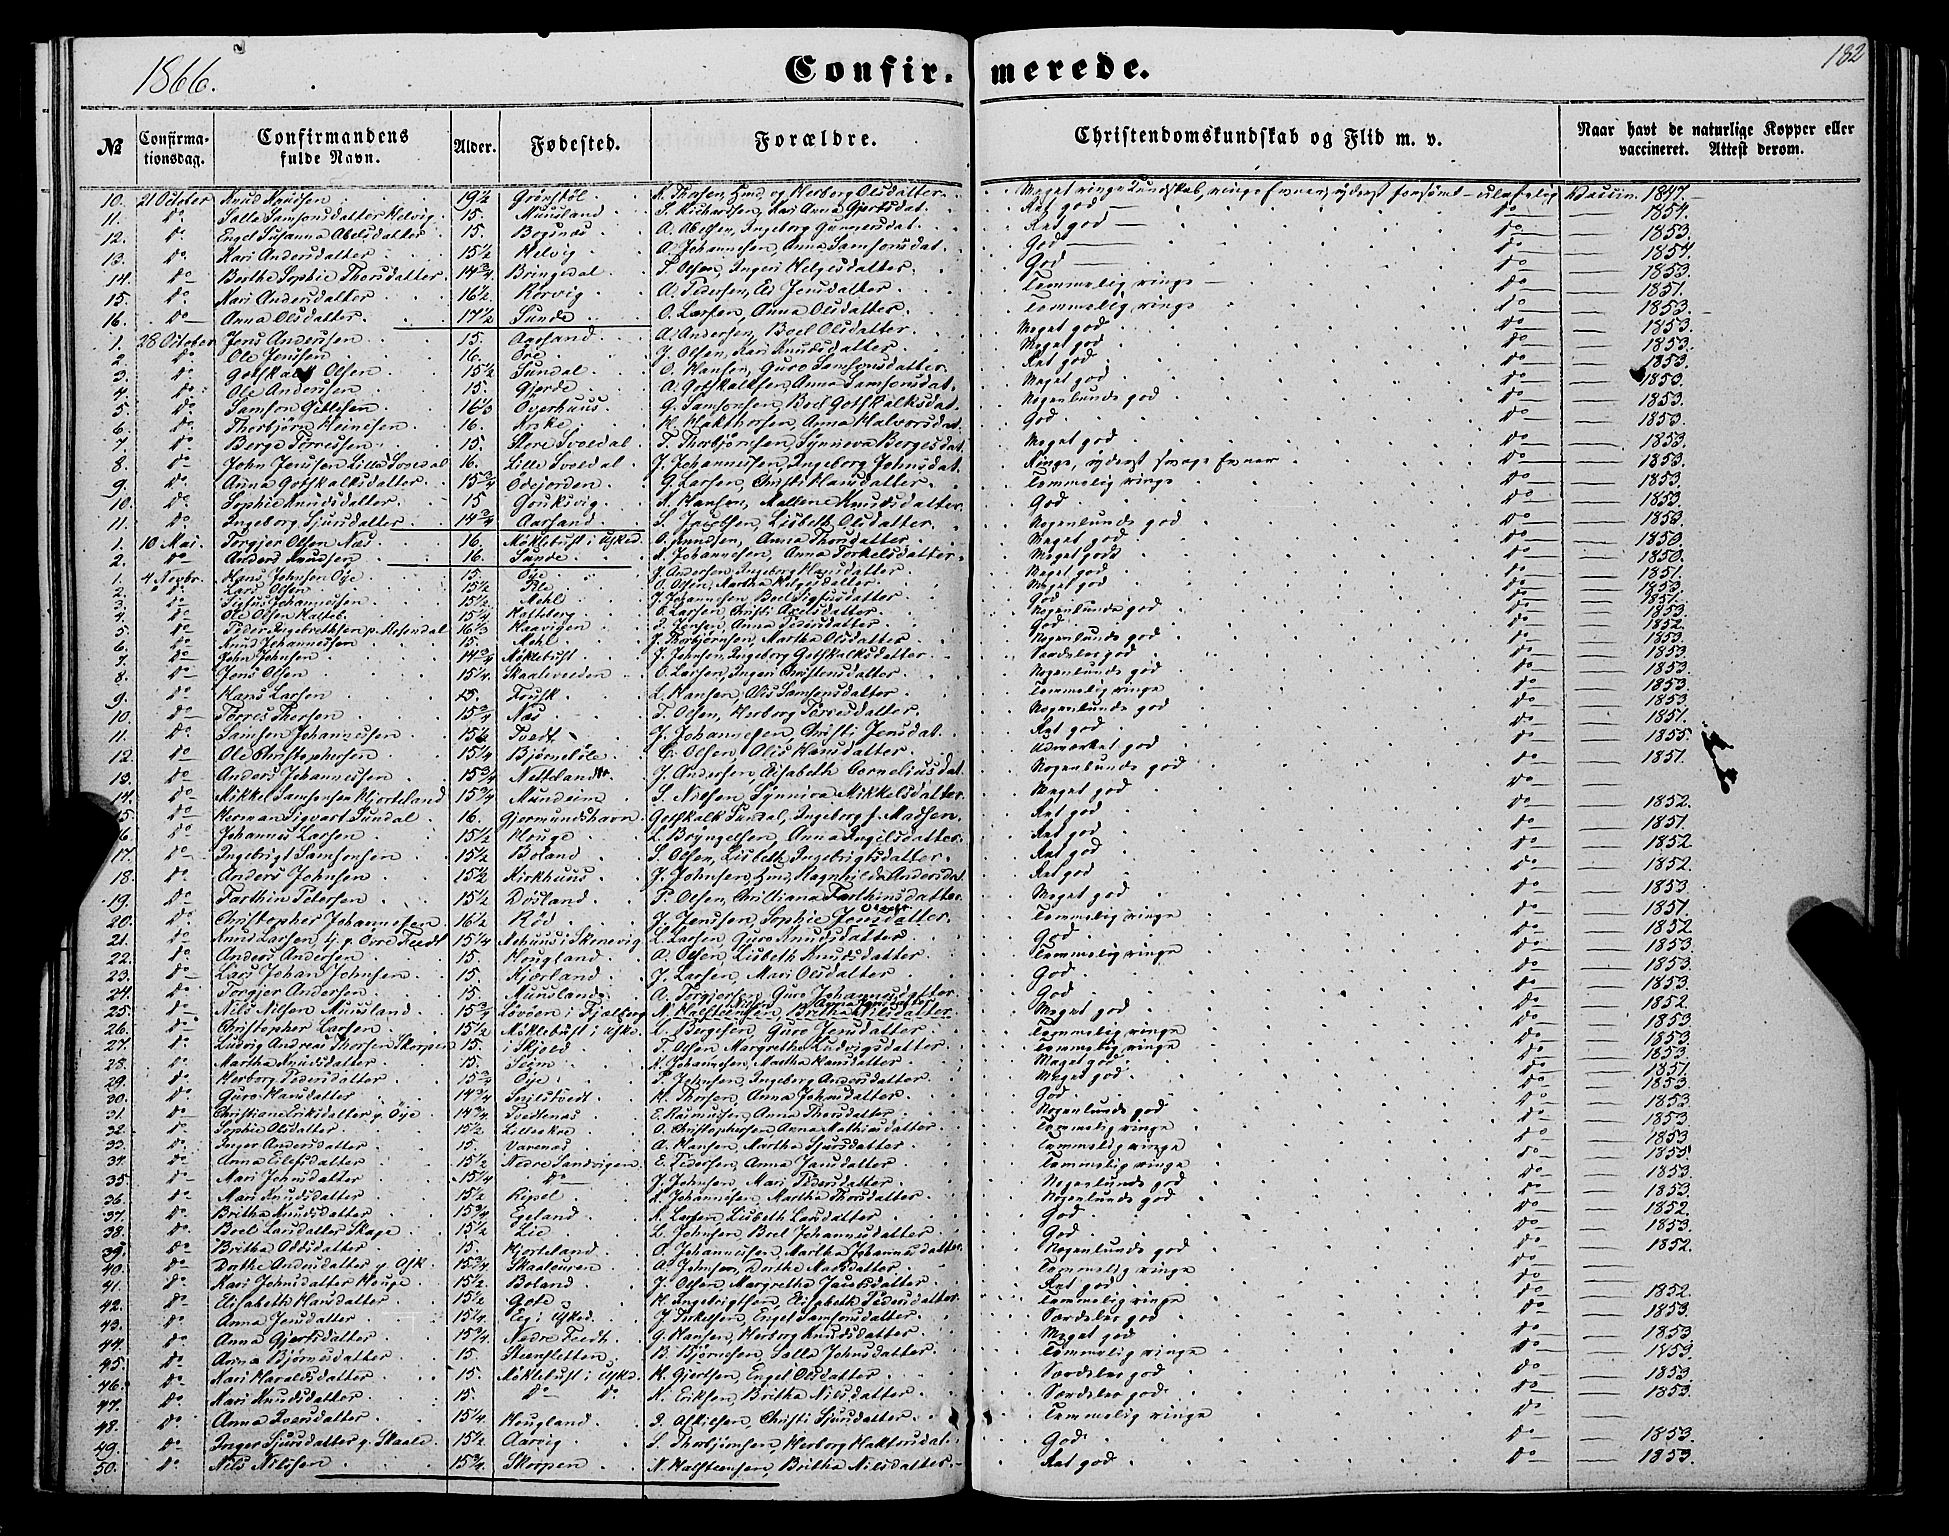 1866.
Confirmerede.
182
№ Confirmationsdag. Confirmandens fulde Navn. Alder. Fødested. Forældre. Christendomskundskab og Flid m. v. Naar havt de naturlige Kopper eller vaccineret. Attest derom.
10. 21 October Knud Knudsen 19½ Grønstøl K. Thorsen, Hmd. og Herborg Olsdatter Meget ringe Kundskab, ringe Evner, yderst forsømt Vaccin. 1847.
11. do Salla Samsonsdatter Helvig 15. Muusland S. Richardsen, Kari Anna Gjertsdat. Ret god do 1854.
12. do Engel Susanna Abelsdatter 15. Bogsnæs A. Abelsen, Ingeborg Gunnersdat. Ret god do 1853.
13. do Kari Andersdatter 15½ Helvig A. Johannesen, Anna Samsonsdat. God do 1854.
14. do Berthe Sophie Thorsdatter 14¾ Bringedal T. Olsen, Ingeri Helgesdatter God do 1853.
15. do Kari Andersdatter 16½ Rørvig A. Pedersen, Jensdatter Temmelig ringe do 1851.
16. do Anna Olsdatter 17½ Sunde O. Larsen, Anna Olsdatter Temmelig ringe do 1853.
1. 28 October Jens Andersen 15. Aarsand A. Andersen, Boel Olsdatter Meget god do 1853.
2. do Ole Jensen 16. Øre J. Olsen, Kari Knudsdatter Meget god do 1853.
3. do Gotskalk Olsen 15½ Sundal O. Hansen, Guro Samsonsdat. Ret god do 1853.
4. do Ole Andersen 15. Gjerde A. Gotskalksen, Anna Samsonsdat. Meget god do 1853.
5. do Samson 16⅓ Overhuus G. Samsonsen, Boel Gotskalksdat. Nogenlunde god do 1853.
6. do Thorbjørn Heinesen 16. Aske H. Hakthorsen, Anna Halvorsdat. God do 1853.
7. do Berge Torresen 15. Store Svoldal T. Thorbjørnsen, Synneva Bergesdat. Meget god do 1853.
8. do John Jensen Lille Svoldal 16. Lille Svoldal J. Johannesen, Ingeborg Johnsdat. Ringe, yderst svage Evner do 1853.
9. do Anna Gotskalksdatter 15¾ Ødejorden G. Larsen, Christi Hansdatter Temmelig ringe do 1853.
10. do Sophie Knudsdatter 15 Gouksvig K. Hansen, Mallene Knudsdatter God do 1853.
11. do Ingeborg Sjursdatter 14¾ Aarsand S. Jacobsen, Lisbeth Olsdatter Nogenlunde god do 1853.
1. 10 Mai. Torgjer Olsen Næs 16. Møklebust i Usked O. Knudsen, Anna Thorsdatter Meget god do 1850.
2. do Anders Knudsen 16. Sunde K. Johannesen, Anna Torkelsdatter Meget god do 1850.
1. 4 Novbr. Hans Johnsen Øye 15. Øye J. Andersen, Ingeborg Hansdatter Meget god do 1851.
2. do Lars Olsen 15½ O. Olsen, Martha Helgesdatter Meget god do 1853.
3. do Sigfus Johannesen 15½ Mehl J. Johannesen, Boel Sigfusdatter God do 1851.
4. do Ole Olsen 15¼ Hatteberg O. Larsen, Christi Axelsdatter Nogenlunde god do 1853.
5. do Peder Ingebrethsen p. Rosendal 16⅓ Haavigen I. Jensen, Anna Pedersdatter God do 1852.
6. do Knud Johannesen 15. Mehl J. Thorbjørnsen, Martha Olsdatter Nogenlunde god do 1853.
7. do John Johnsen 14¾ Møklebust J. Johnsen, Ingeborg Gotskalksdatter Særdeles god do 1853.
8. do Jens Olsen 15¼ Skaaleveden O. Larsen, Inger Christensdatter Nogenlunde god do 1853.
9. do Hans Larsen 15. L. Hansen, Alis Samsonsdatter Temmelig ringe do 1853.
10. do Torres Thorsen 15¾ Næs T. Olsen, Herborg Torresdatter Nogenlunde god do 1853.
11. do Samson Johannesen 15½ Tvedt J. Johannesen, Christi Jensdat. Ret god do 1851.
12. do Ole Christophersen 15¼ Bjørnebøle C. Olsen, Alis Hansdatter Udmærket god do 1855.
13. do Anders Johannesen 15¾ Netteland J. Andersen, Elisabeth Corneliusdat. Nogenlunde god do 1851.
14. do Mikkel Samsonsen Hjorteland 15¾ Mundeim S. Nielsen, Synniva Mikkelsdatter Meget god do
15. do Herman Sigvart Sundal 16. Gjermundshavn Gotskalk Sundal, Ingeborg f. Madsen Ret god do 1852.
16. do Johannes Larsen 15½ Houge L. Bryngelsen, Anna Engelsdatter Ret god do 1851.
17. do Ingebrigt Samsonsen 15½ Boland S. Olsen, Lisbeth Ingebrigtsdatter Ret god do 1852.
18. do Anders Johnsen 15½ Kirkhuus J. Johnsen, Hmd. Ragnhilde Andersdat. Ret god do 1852.
19. do Farthin Petersen 15½ Døsland P. Olsen, Christiana Farthinsdatter Meget god do 1853.
20. do Christopher Johannessen 16½ Rød J. Jensen, Sophie Jensdatter Temmelig ringe do 1851.
21. do Knud Larsen, g. p. Øvre Feedt 15¼ Nehuus i Skonevig L. Larsen, Guro Knudsdatter God do 1852
22. do Anders Andersen 15. Hougland A. Olsen, Lisbeth Knudsdatter Temmelig ringe do 1853.
23. do Lars Johan Johnsen 15. Kjærland J. Larsen, Mari Olsdatter God do 1853.
24. do Torgjer Andersen 15. Muusland A. Torgjersen, Guro Johannesdatter God do 1853.
25. do Nils Nilsen Muusland 15¾ Løvøen i Fjelberg N. Halsteensen, Britha Nilsdatter Meget god do 1852.
26. do Christopher Larsen 15½ Møklebust i Uske. L. Bergesen, Guro Jensdatter Temmelig ringe do 1853.
27. do Ludvig Andreas Thorsen Skorpen 15. i Skjold T. Olsen, Margrethe Ludvigsdatter Temmelig ringe do 1853.
28. do Martha Knudsdatter 15. Seim K. Johannesen, Martha Hansdatter Meget god do 1853.
29. do Herborg Pedersdatter 15¾ Øye P. Johnsen, Ingeborg Andersdatter Meget god do 1851.
30. do Guro Hansdatter 14¾ Snilstvedt H. Thorsen, Anna Johnsdatter God do 1853.
31. do Christiane Eriksdatter g. Øye 14¾ Tvedtenæs E. Rasmussen, Anna Thorsdatter Nogenlunde god do 1853.
32. do Sophie Olsdatter 15½ Lilleskre O. Christophersen, Anna Mathiasdatter Temmelig ringe do 1853.
33. do Inger Andersdatter 15. Varenæs A. Hansen, Martha Sjursdatter Temmelig ringe do 1853.
34. do Anna Eilefsdatter 15½ Nedre Sandvigen E. Pedersen, Anna Jansdatter Temmelig ringe do 1855.
35. do Mari Johnsdatter 15¼ do J. Johnsen, Mari Pedersdatter Nogenlunde god do 1853.
36. do Mari Knudsdatter 15½ Ripel K. Johannesen, Martha Thorsdatter Nogenlunde god do 1853.
37. do Britha Knudsdatter 15¾ Egeland K. Larsen, Lisbeth Larsdatter God do 1852.
38. do Boel Larsdatter Skage 15½ Lie L. Johnsen, Boel Johannesdatter God do 1853.
39. do Britha Oddsdatter 15. Hjorteland O. Johannesen, Martha Johannesdatter Nogenlunde god do 1852.
40. do Dorthe Andersdatter g. Ask 15¾ Skaaleuren A. Johnsen, Dorthe Madsdatter Temmelig ringe do
41. do Kari Johnsdatter Houge 15½ Boland J. Olsen, Margretha Ret god do 1852.
42. do Elisabeth Hansdatter 15½ Gote H. Ingebrigtsen, Elisabeth Pedersdatter Temmelig ringe do 1853.
43. do Anna Jensdatter 15¼ Eeg i Usked. J. Torkelsen, Engel Samsonsdatter Særdeles god do 1853.
44. do Anna Gjertsdatter 15¼ Nedre Feedt G. Hansen, Herborg Knudsdatter Meget god do 1853.
45. do Anna Bjørnsdatter 15. Steensletten B. Bjørnsen, Salla Johnsdatter Temmelig ringe do 1853.
46. do Kari Haraldsdatter 15. Møklebust i Uske. H. Gjertsen, Engel Olsdatter Særdeles god do 1853.
47. do Kari Knudsdatter 15. do do K. Eriksen, Britha Nilsdatter Særdeles god do 1853.
48. do Anna Iversdatter 15¼ Hougland I. Askilsen, Christi Sjursdatter Temmelig ringe do
49. do Inger Sjursdatter g. Skaale 15½ Aarvig S. Thorbjørnsen, Herborg Haktorsdat. God do 1853.
50. do Nils Nilssen 15¾ Skorpen N. Halsteensen, Britha Nilsdatter Ret god do 1853.